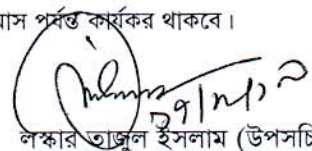 মাস পর্যন্ত কার্যকর থাকবে।
লস্কার তাজুল ইসলাম (উপসচি